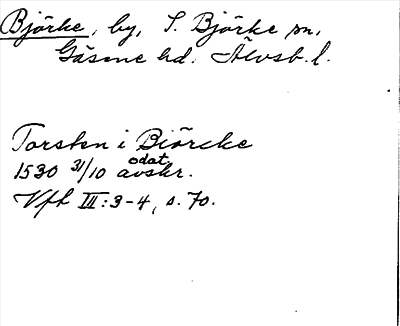 Björke, by, S. Björke sn,
Gäsene hd. Älvsb. l.
Torsten i Biörcke
1530 31/10 odat. avskr.
Vfh III: 3-4, s. 70.